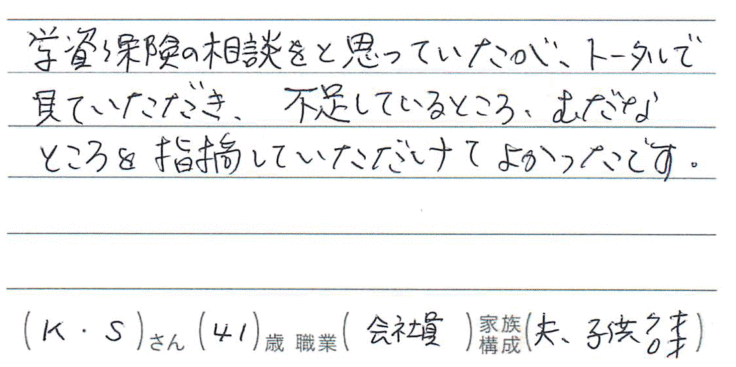 学資保険の相談をと思っていたが、トータルで
見ていただき、不足しているところ、むだな
ところを指摘していただけてよかったです。
(K・S)さん (41)歳 職業(会社員)家族構成(夫、子供 7才 0才)